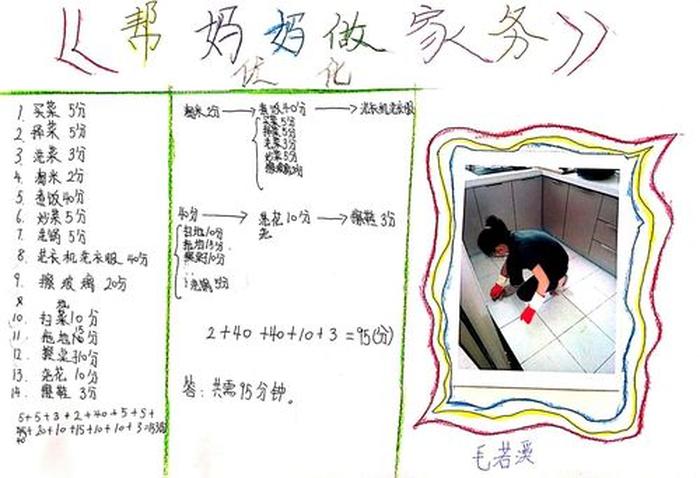 《帮妈妈做家务》
优化
1. 买菜 5分
2. 择菜 5分
3. 洗菜 3分
4. 淘米 2分
5. 煮饭 40分
6. 炒菜 5分
7. 洗锅 5分
8. 洗衣机洗衣服 40分
9. 擦玻璃 20分
10. 扫 10分
11. 拖地 15分
12. 擦桌子10分
13. 浇花 10分
14. 擦鞋 3分
5+5+3+2+40+5+5+
40+20+10+15+10+10+3=
淘米2分 → 煮饭40分 → 洗衣机洗衣服
买菜5分
择菜5分
洗菜3分
炒菜5分
擦玻璃20分
40分 → 浇花10分 → 擦鞋 3分
扫地10分
拖地15分
擦桌子10分
洗锅5分
2+40+40+10+3=95(分)
答:共需95分钟。
毛若溪